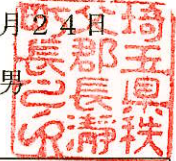 月２４日
男
埼玉県秩
父郡長瀞
町長之印